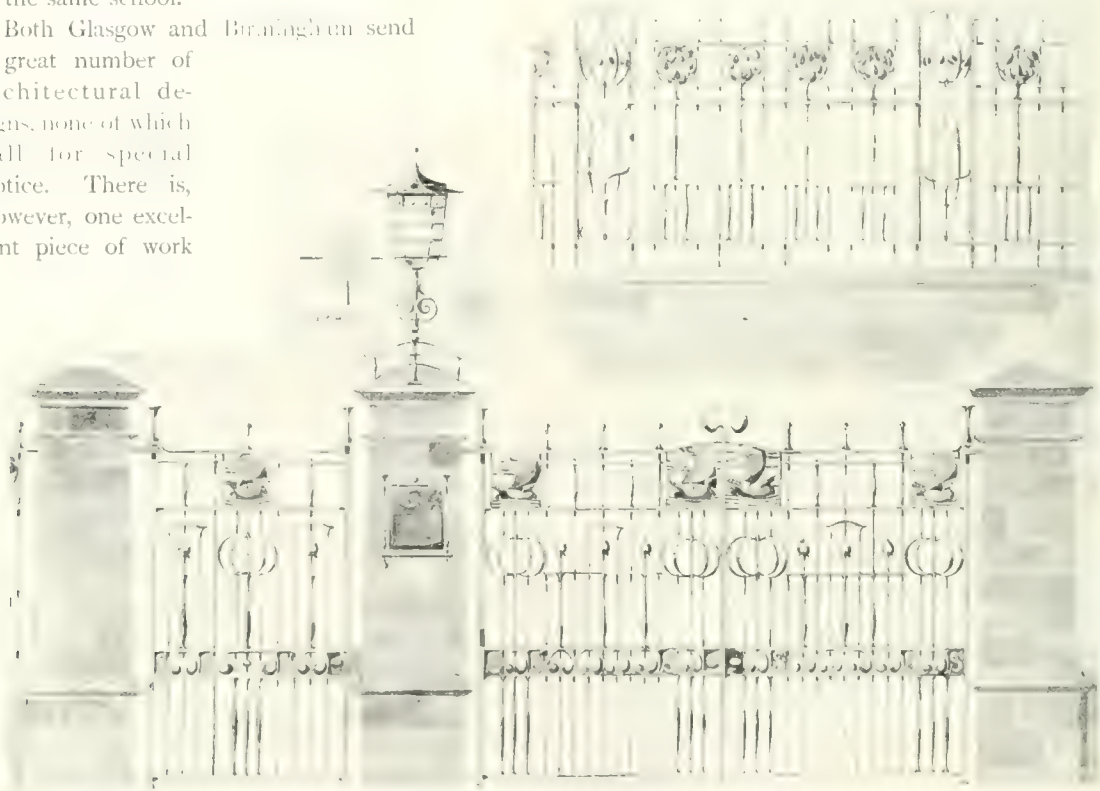 the same school.
Both Glasgow and Birmingham send
great number of
chitectural de-
gns, none of which
all for special
otice. There is,
owever, one excel-
nt piece of work